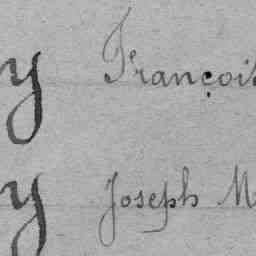 y François
y Joseph M